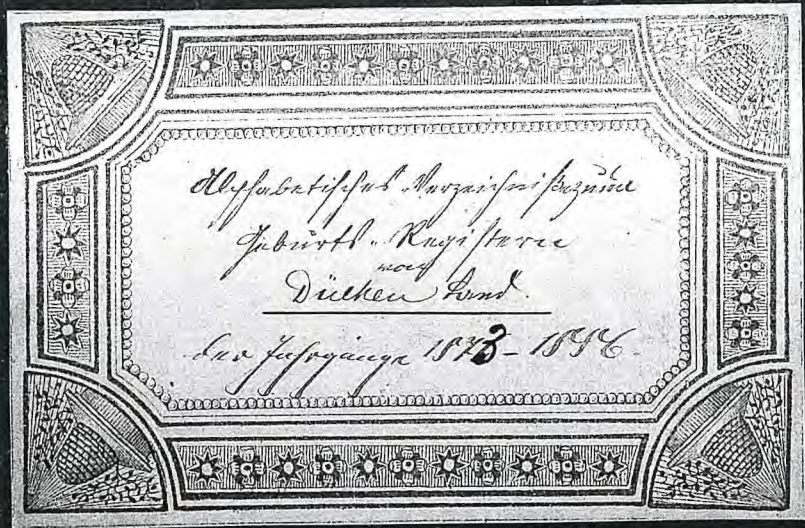 Alphabetisches Verzeichniß zum
Geburts-Registern
von
Dülken Land.
der Jahrgänge 1873-1896.